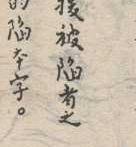 後被陷者之
的陷本字。